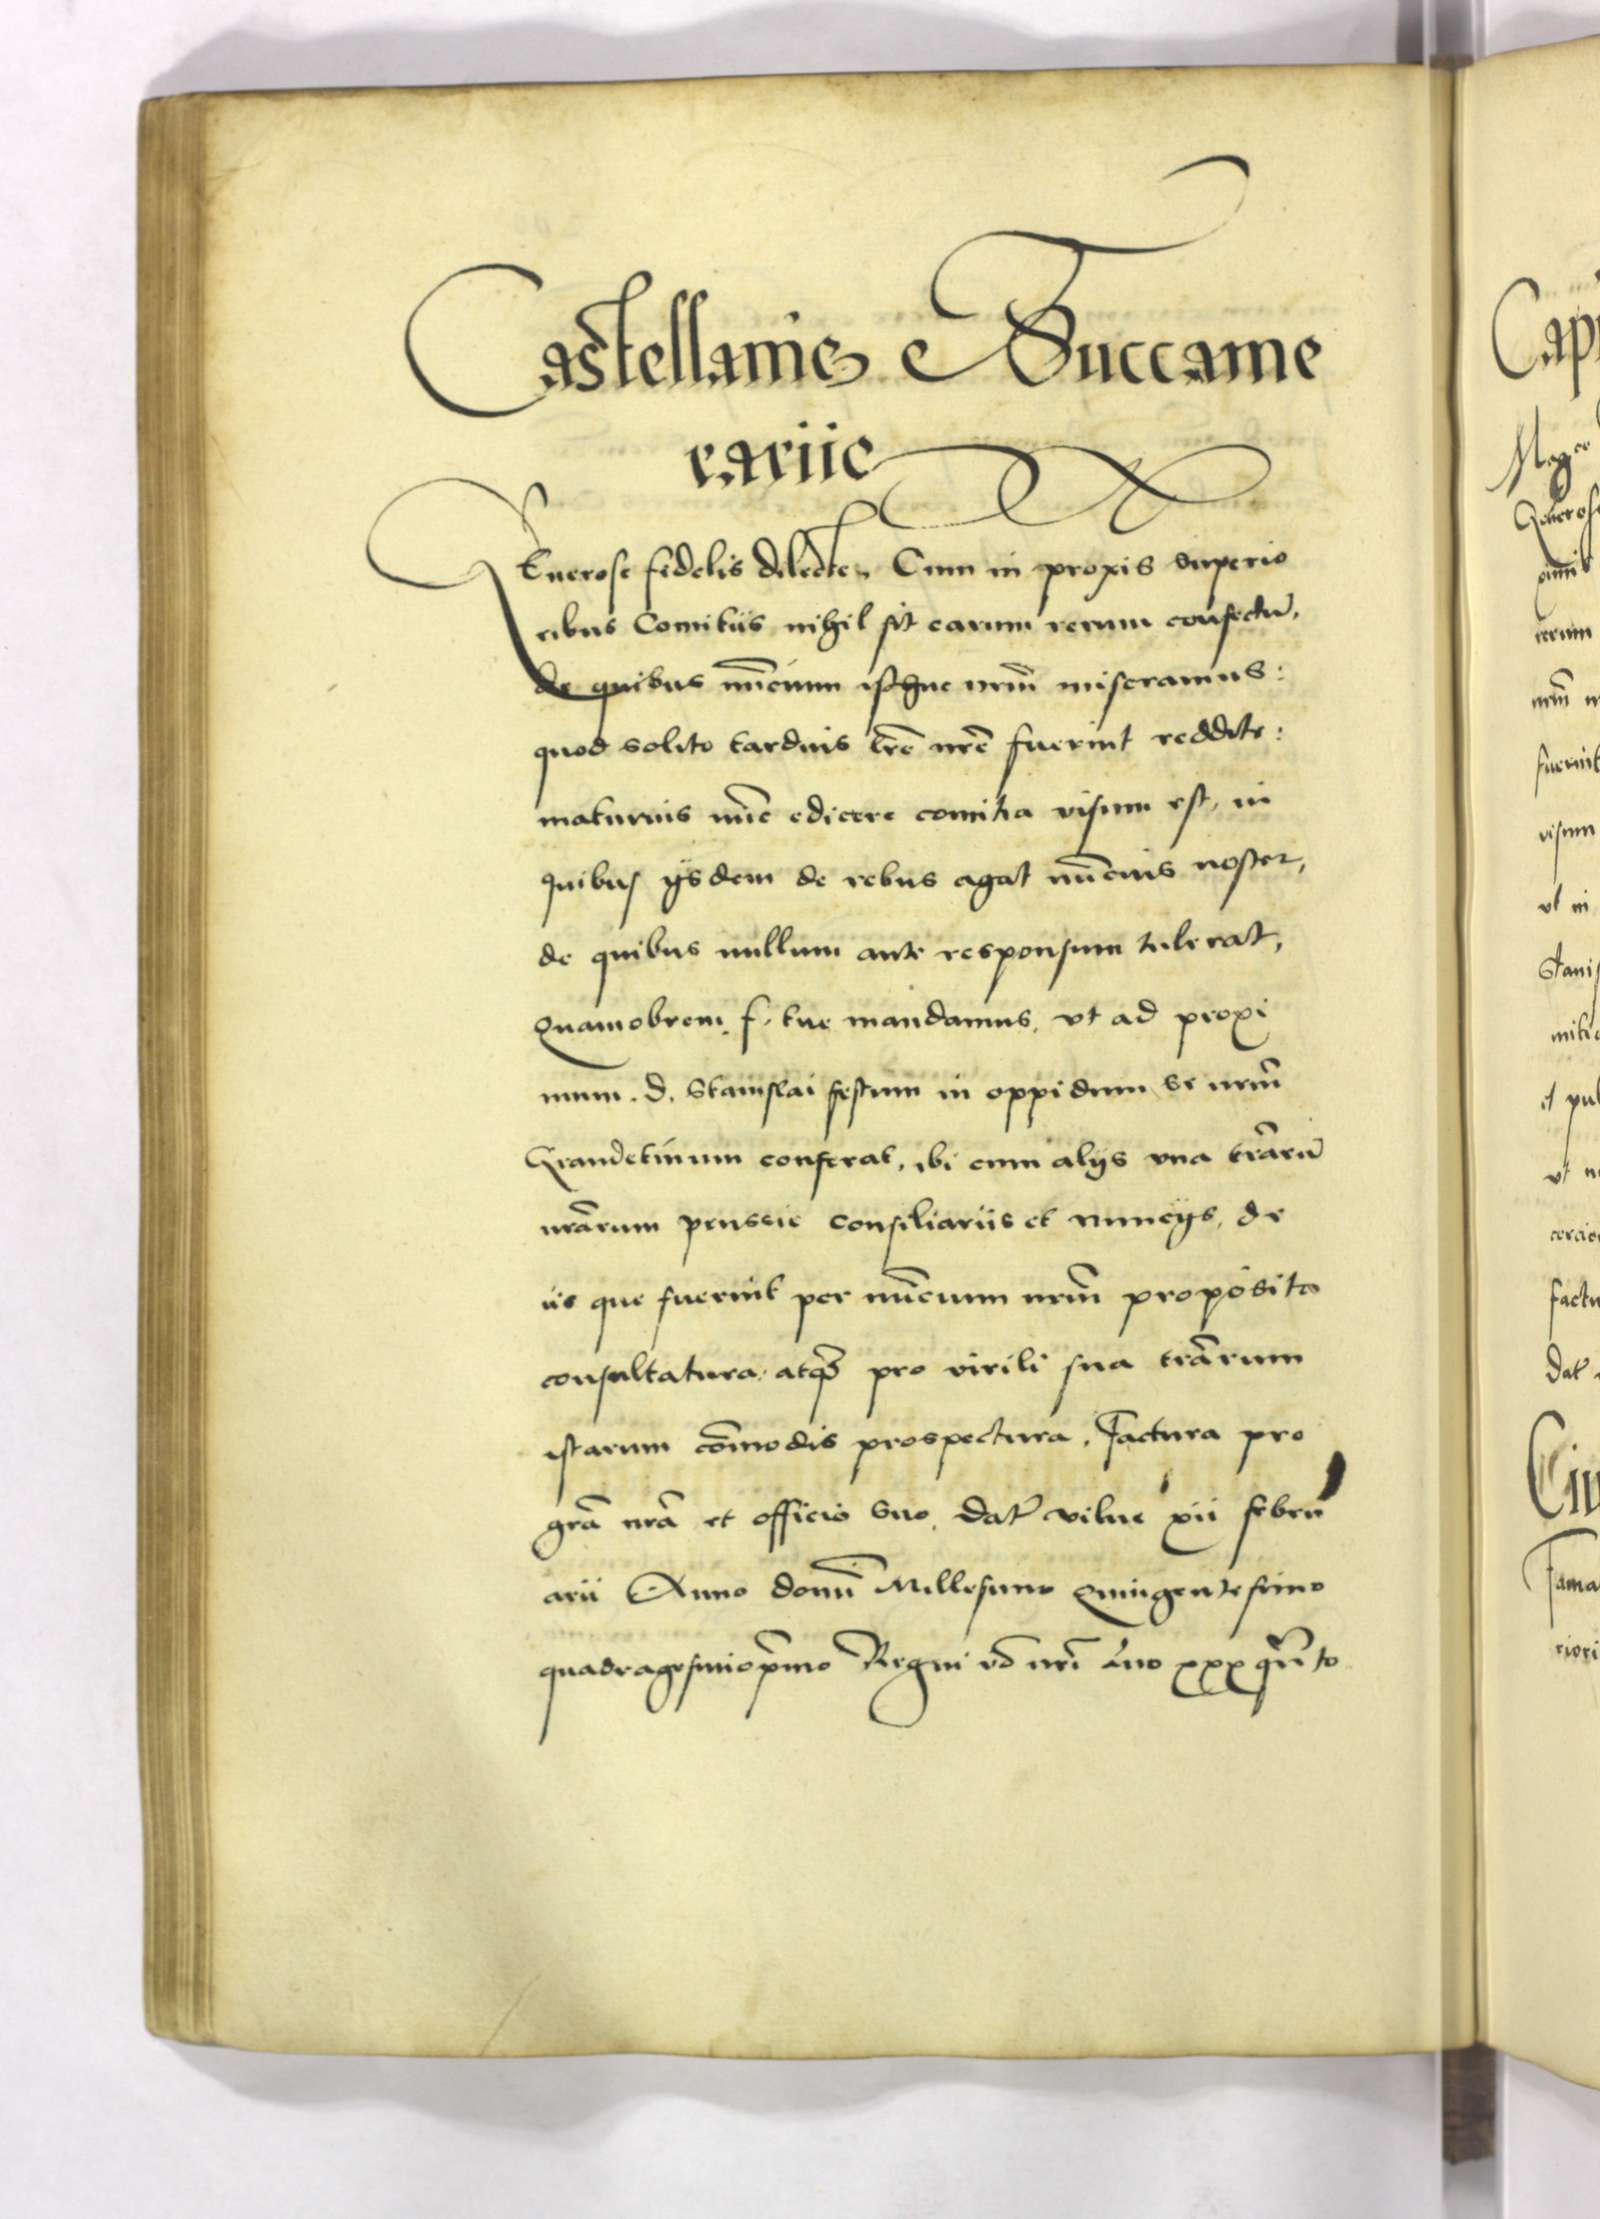 Castellanis e Succame
rariis
Generose fidelis dilecte. Cum in proxis superio
ribus Comitiis nihil sit earum rerum confectũ,
de quibus nũcium isthuc nrm̃ miseramus:
quod solito tardius lrẽ nrẽ fuerint reddite:
maturius nũc edicere comitia visum est, in
quibus ijsdem de rebus agat nũcius noster,
de quibus nullum ante responsum tulerat,
Quamobrem f. tue mandamus, vt ad proxi
mum. d. Stanislai festum in oppidum se nrm̃
Graudetinum conferat, ibi cum alijs vna trãrũ
nrãrum prussie consiliariis et nuncijs, de
iis que fuerint per nũcium nrm̃ proposita
consultatura, atq3 pro virili sua trãrum
istarum cõmodis prospectura. Factura pro
grã nrã et officio suo. Dat̃ vilne xii febru
arii Anno domĩ Millesimo Quingentesimo
quadragesimop̃mo Regni vō nrĩ ãno xxx qũto
Cap
Mag
Generos
ximis
rerum
nrm̃
fuerint
visum
vt in
Stanis
mitia
et pu
vt
factu
Dat̃
Ciu
Fama
riori